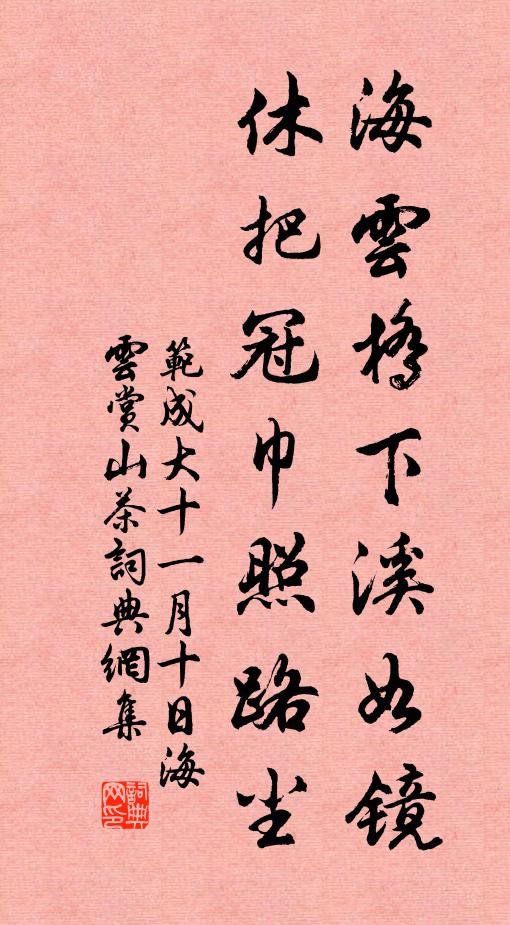 海雲橋下溪如镜
休把冠巾照路尘
範成大十一月十日海
雲賞山茶詞典網集
詞典
网印